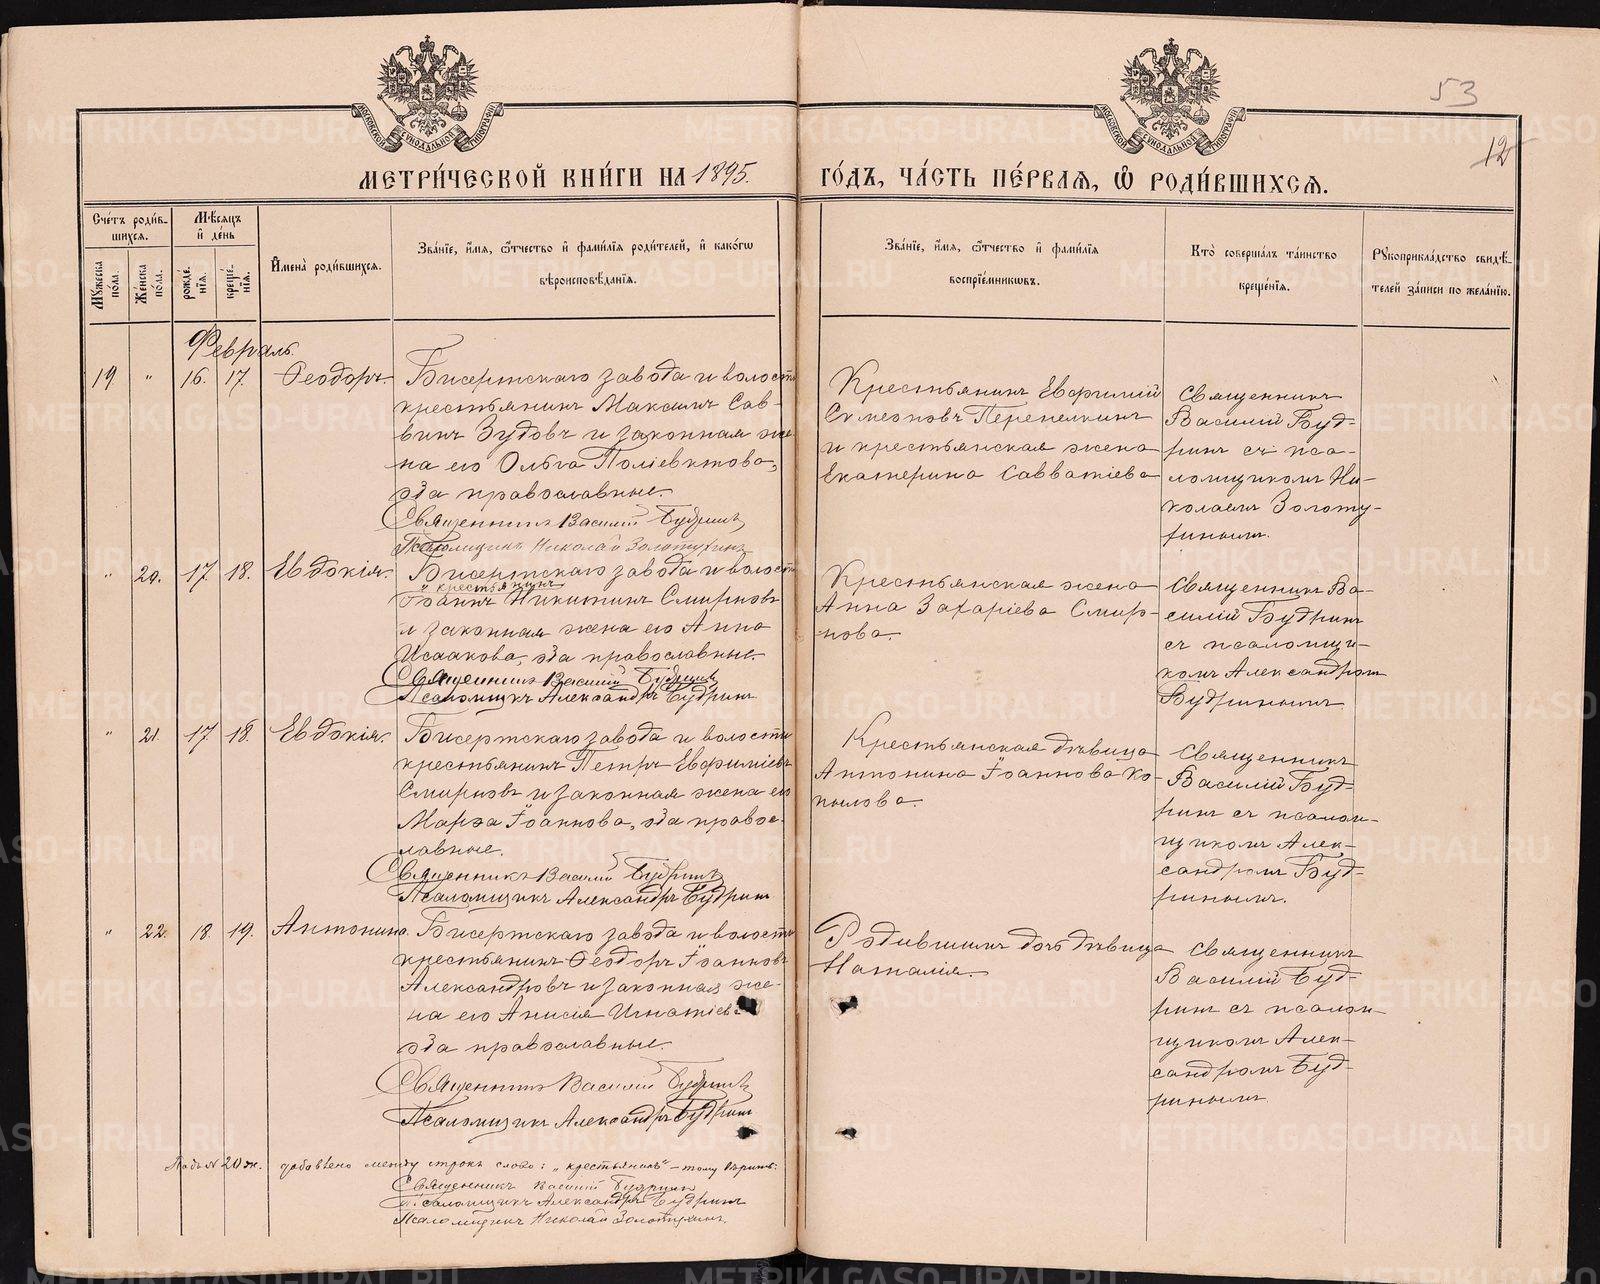 53
12
МЕТРИ́ЧЕСКОЙ КНИ́ГИ НА 1895. ГО́ДЪ, ЧА́СТЬ ПЕ́РВАѦ, Ѽ РОДИ́ВШИХСѦ.
Сче́тъ роди́в-
шихся.
Мѣ́сяцъ
и҆ де́нь
Мꙋ́жеска по́ла.
Же́нска по́ла.
рожде́-
нїѧ.
креще́-
нїѧ.
И҆мена̀ роди́вшихся.
Зва́нїе, и҆́мѧ, ѻ҆́тчество и҆ фами́лїѧ роди́телей, и҆ како́гѡ
вѣроисповѣ́данїѧ.
Зва́нїе, и҆́мѧ, ѻ҆́тчество и҆ фами́лїѧ
воспрїе́мникѡвъ.
Кто̀ соверша́лъ та́инство
креще́нїѧ.
Рꙋкоприкла́дство свидѣ́-
телей за́писи по жела́нїю.
Февраль.
19 " 16. 17. Ѳеодоръ.
Бисертскаго завода и волости
крестьянинъ Максимъ Сав-
винъ Зудовъ и законная же-
на его Ольга Поліевктова,
оба православные.
Священникъ Василий Будринъ
Псаломщикъ Николай Золотухинъ
Крестьянинъ Евфимій
Симеоновъ Перепелкинъ
и крестьянская жена
Екатерина Савватіева
Священникъ
Василій Буд-
ринъ съ пса-
ломщикомъ Ни-
колаемъ Золоту-
хинымъ.
" 20. 17. 18. Евдокія.
Бисертскаго завода и волости
крестьянинъ
Іоаннъ Никитинъ Смирновъ
и законная жена его Анна
Исаакова, оба православные.
Священникъ Василій Будринъ
Псаломщикъ Александръ Будринъ
Крестьянская жена
Анна Захаріева Смир-
нова.
Священникъ Ва-
силій Будринъ
съ псаломщи-
комъ Александромъ
Будринымъ.
" 21. 17. 18. Евдокія.
Бисертскаго завода и волости
крестьянинъ Петръ Евфиміевъ
Смирновъ и законная жена его
Марѳа Іоаннова, оба право-
славные.
Священникъ Василій Будринъ
Псаломщикъ Александръ Будринъ
Крестьянская дѣвица
Антонина Іоаннова Ко-
пылова
Священникъ
Василій Буд-
ринъ съ псалом-
щикомъ Алек-
сандромъ Буд-
ринымъ.
" 22. 18. 19. Антонина.
Бисертскаго завода и волости
крестьянинъ Ѳеодоръ Іоанновъ
Александровъ и законная же-
на его Анисія Игнатіева
оба православные.
Священникъ Василій Будринъ
Псаломщикъ Александръ Будринъ
Родившимъ дочь дѣвица
Наталія.
Священникъ
Василій Буд-
ринъ съ псалом-
щикомъ Алек-
сандромъ Буд-
ринымъ
Подъ № 20 ж. добавлено между строкъ слово: "крестьянинъ" – тому вѣримъ:
Священникъ Василій Будринъ
Псаломщикъ Александръ Будринъ
Псаломщикъ Николай Золотухинъ.
METRIKI.GASO-URAL.RU